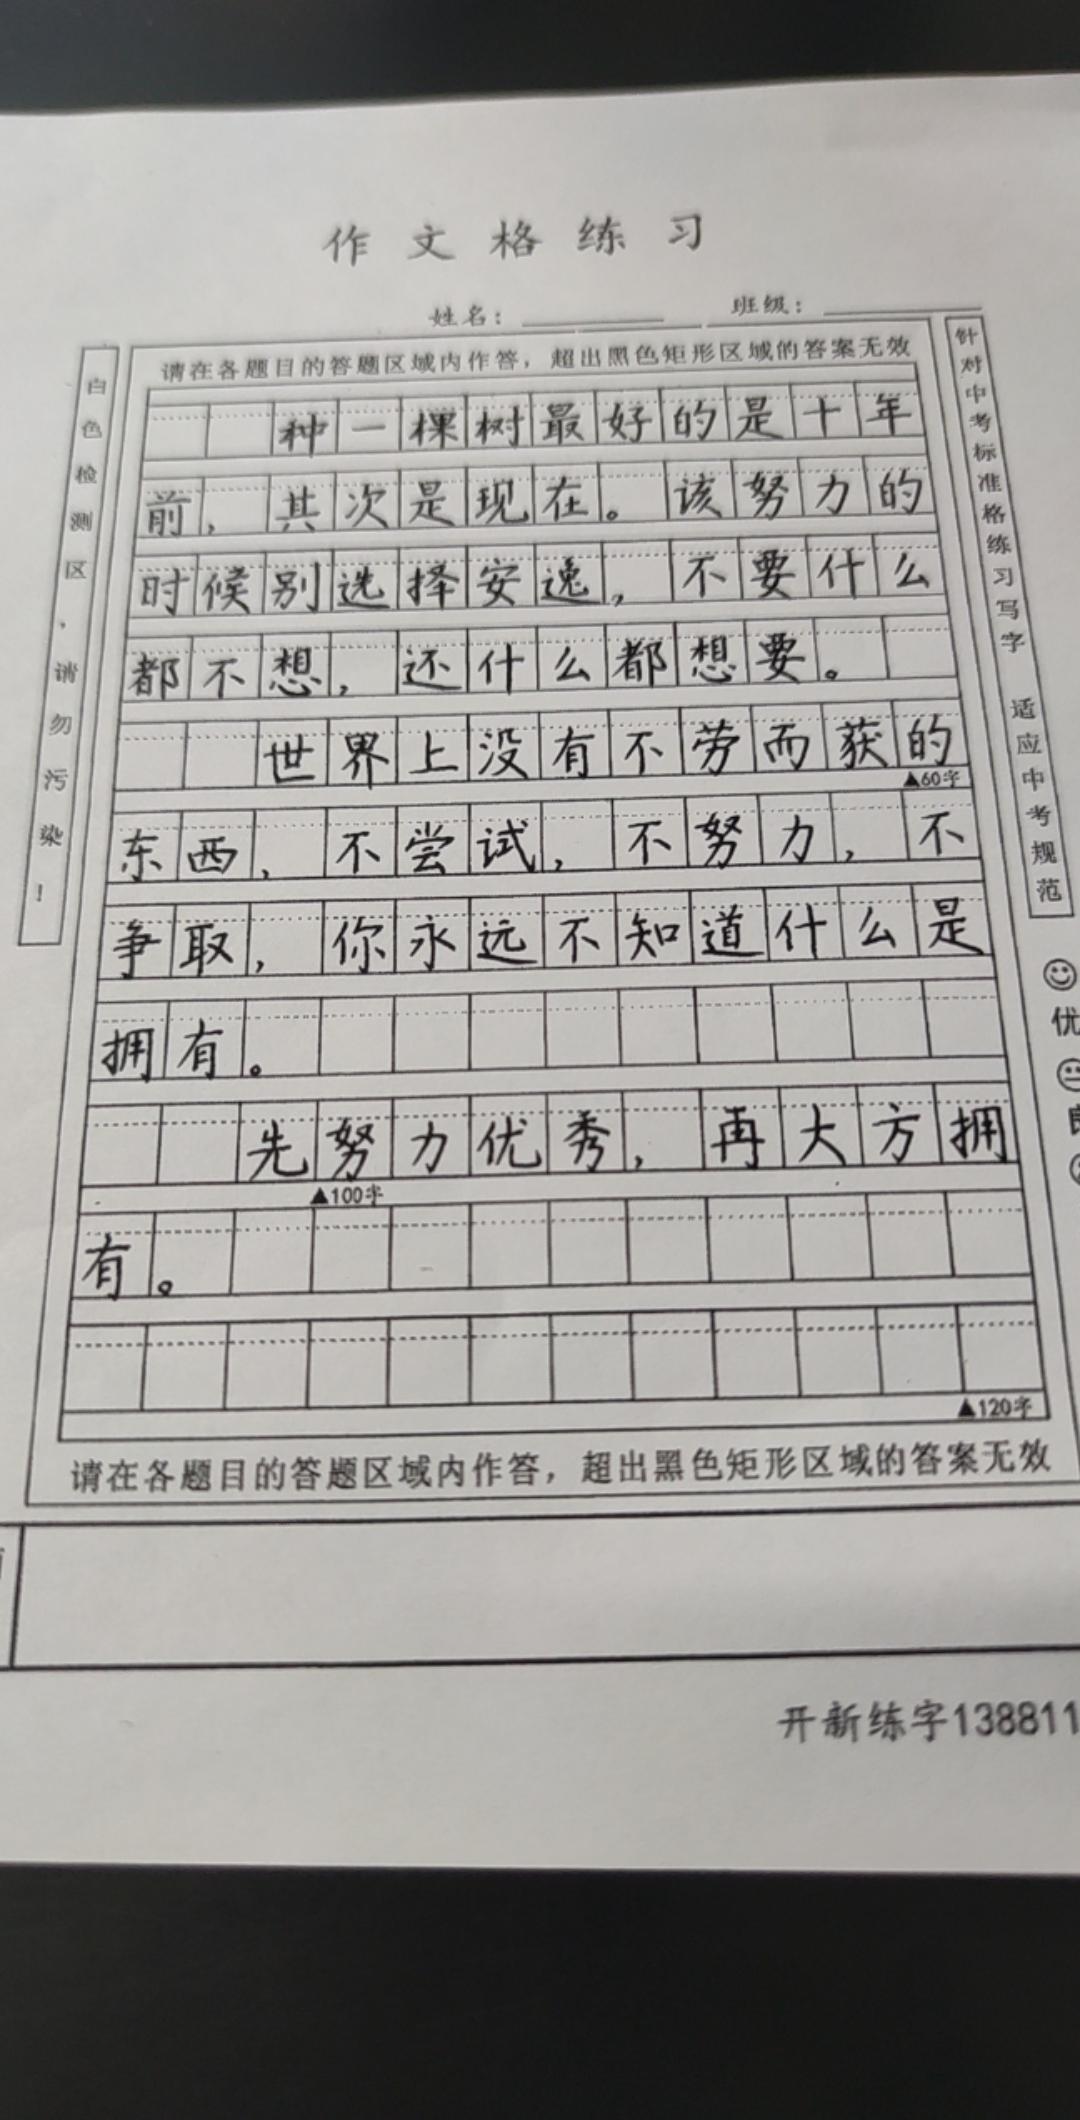 作文格练习
姓名： 班级：
请在各题目的答题区域内作答，超出黑色矩形区域的答案无效
白色检测区，请勿污染！
种一棵树最好的是十年
前，其次是现在。该努力的
时候别选择安逸，不要什么
都不想，还什么都想要。
世界上没有不劳而获的
▲60字
东西，不尝试，不努力，不
争取，你永远不知道什么是
拥有。
先努力优秀，再大方拥
▲100字
有。
▲120字
请在各题目的答题区域内作答，超出黑色矩形区域的答案无效
针对中考标准格练习写字 适应中考规范
优
开新练字138811